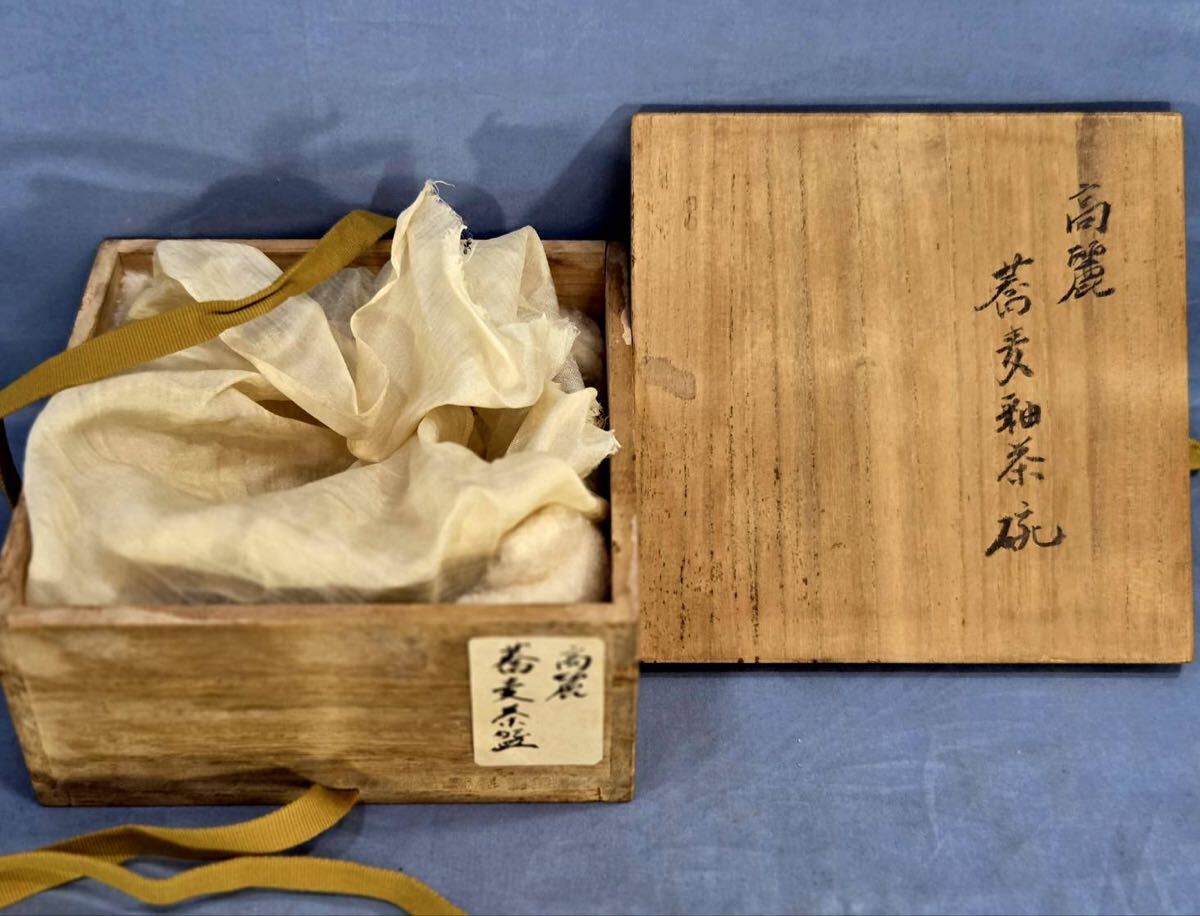 高麗
蕎麦釉茶碗
高麗
蕎麦茶盌